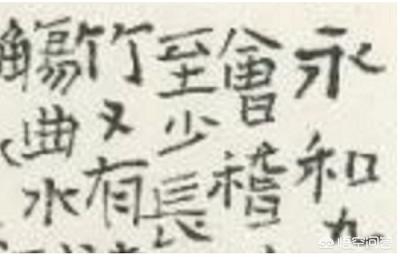 永和九
會稽
至少長
竹又有
觴曲水
悟空问答